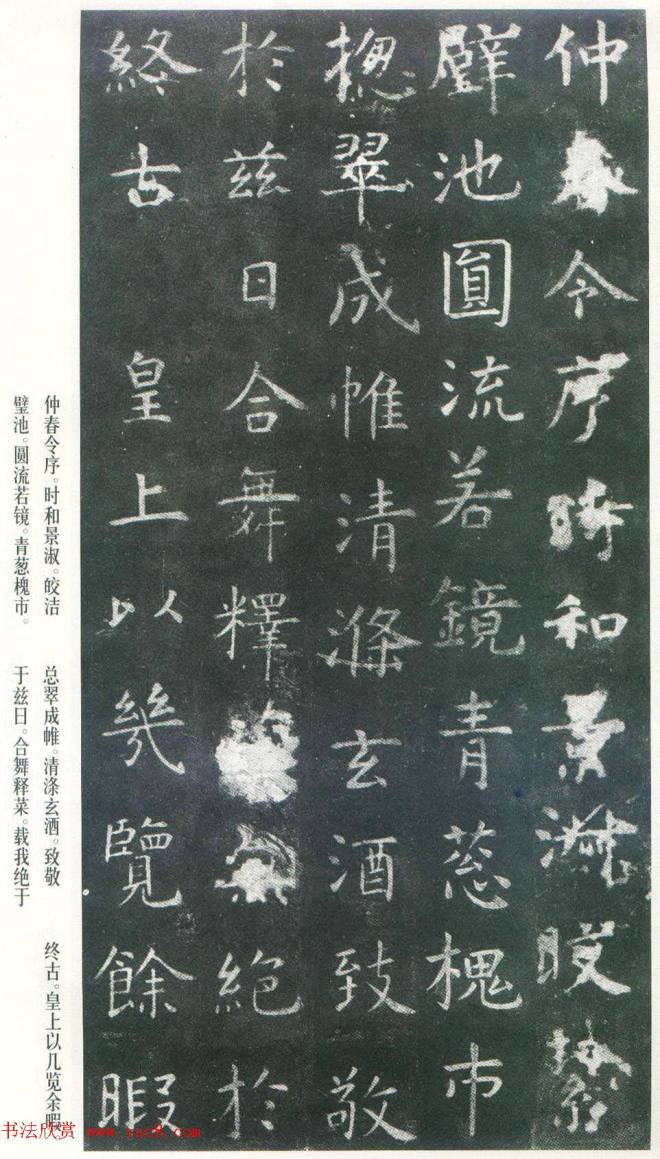 仲春令序時和景淑
璧池圓流若鏡青葱槐市
揔翠成帷清滌玄酒致敬
於茲日合舞釋絕於
終古皇上以幾覽餘暇
仲春令序。时和景淑。皎洁
璧池。圆流若镜。青葱槐市。
总翠成帷。清涤玄酒。致敬
于兹日。合舞释菜。载我绝于
终古。皇上以几览余暇
书法欣赏 www.yac8.com